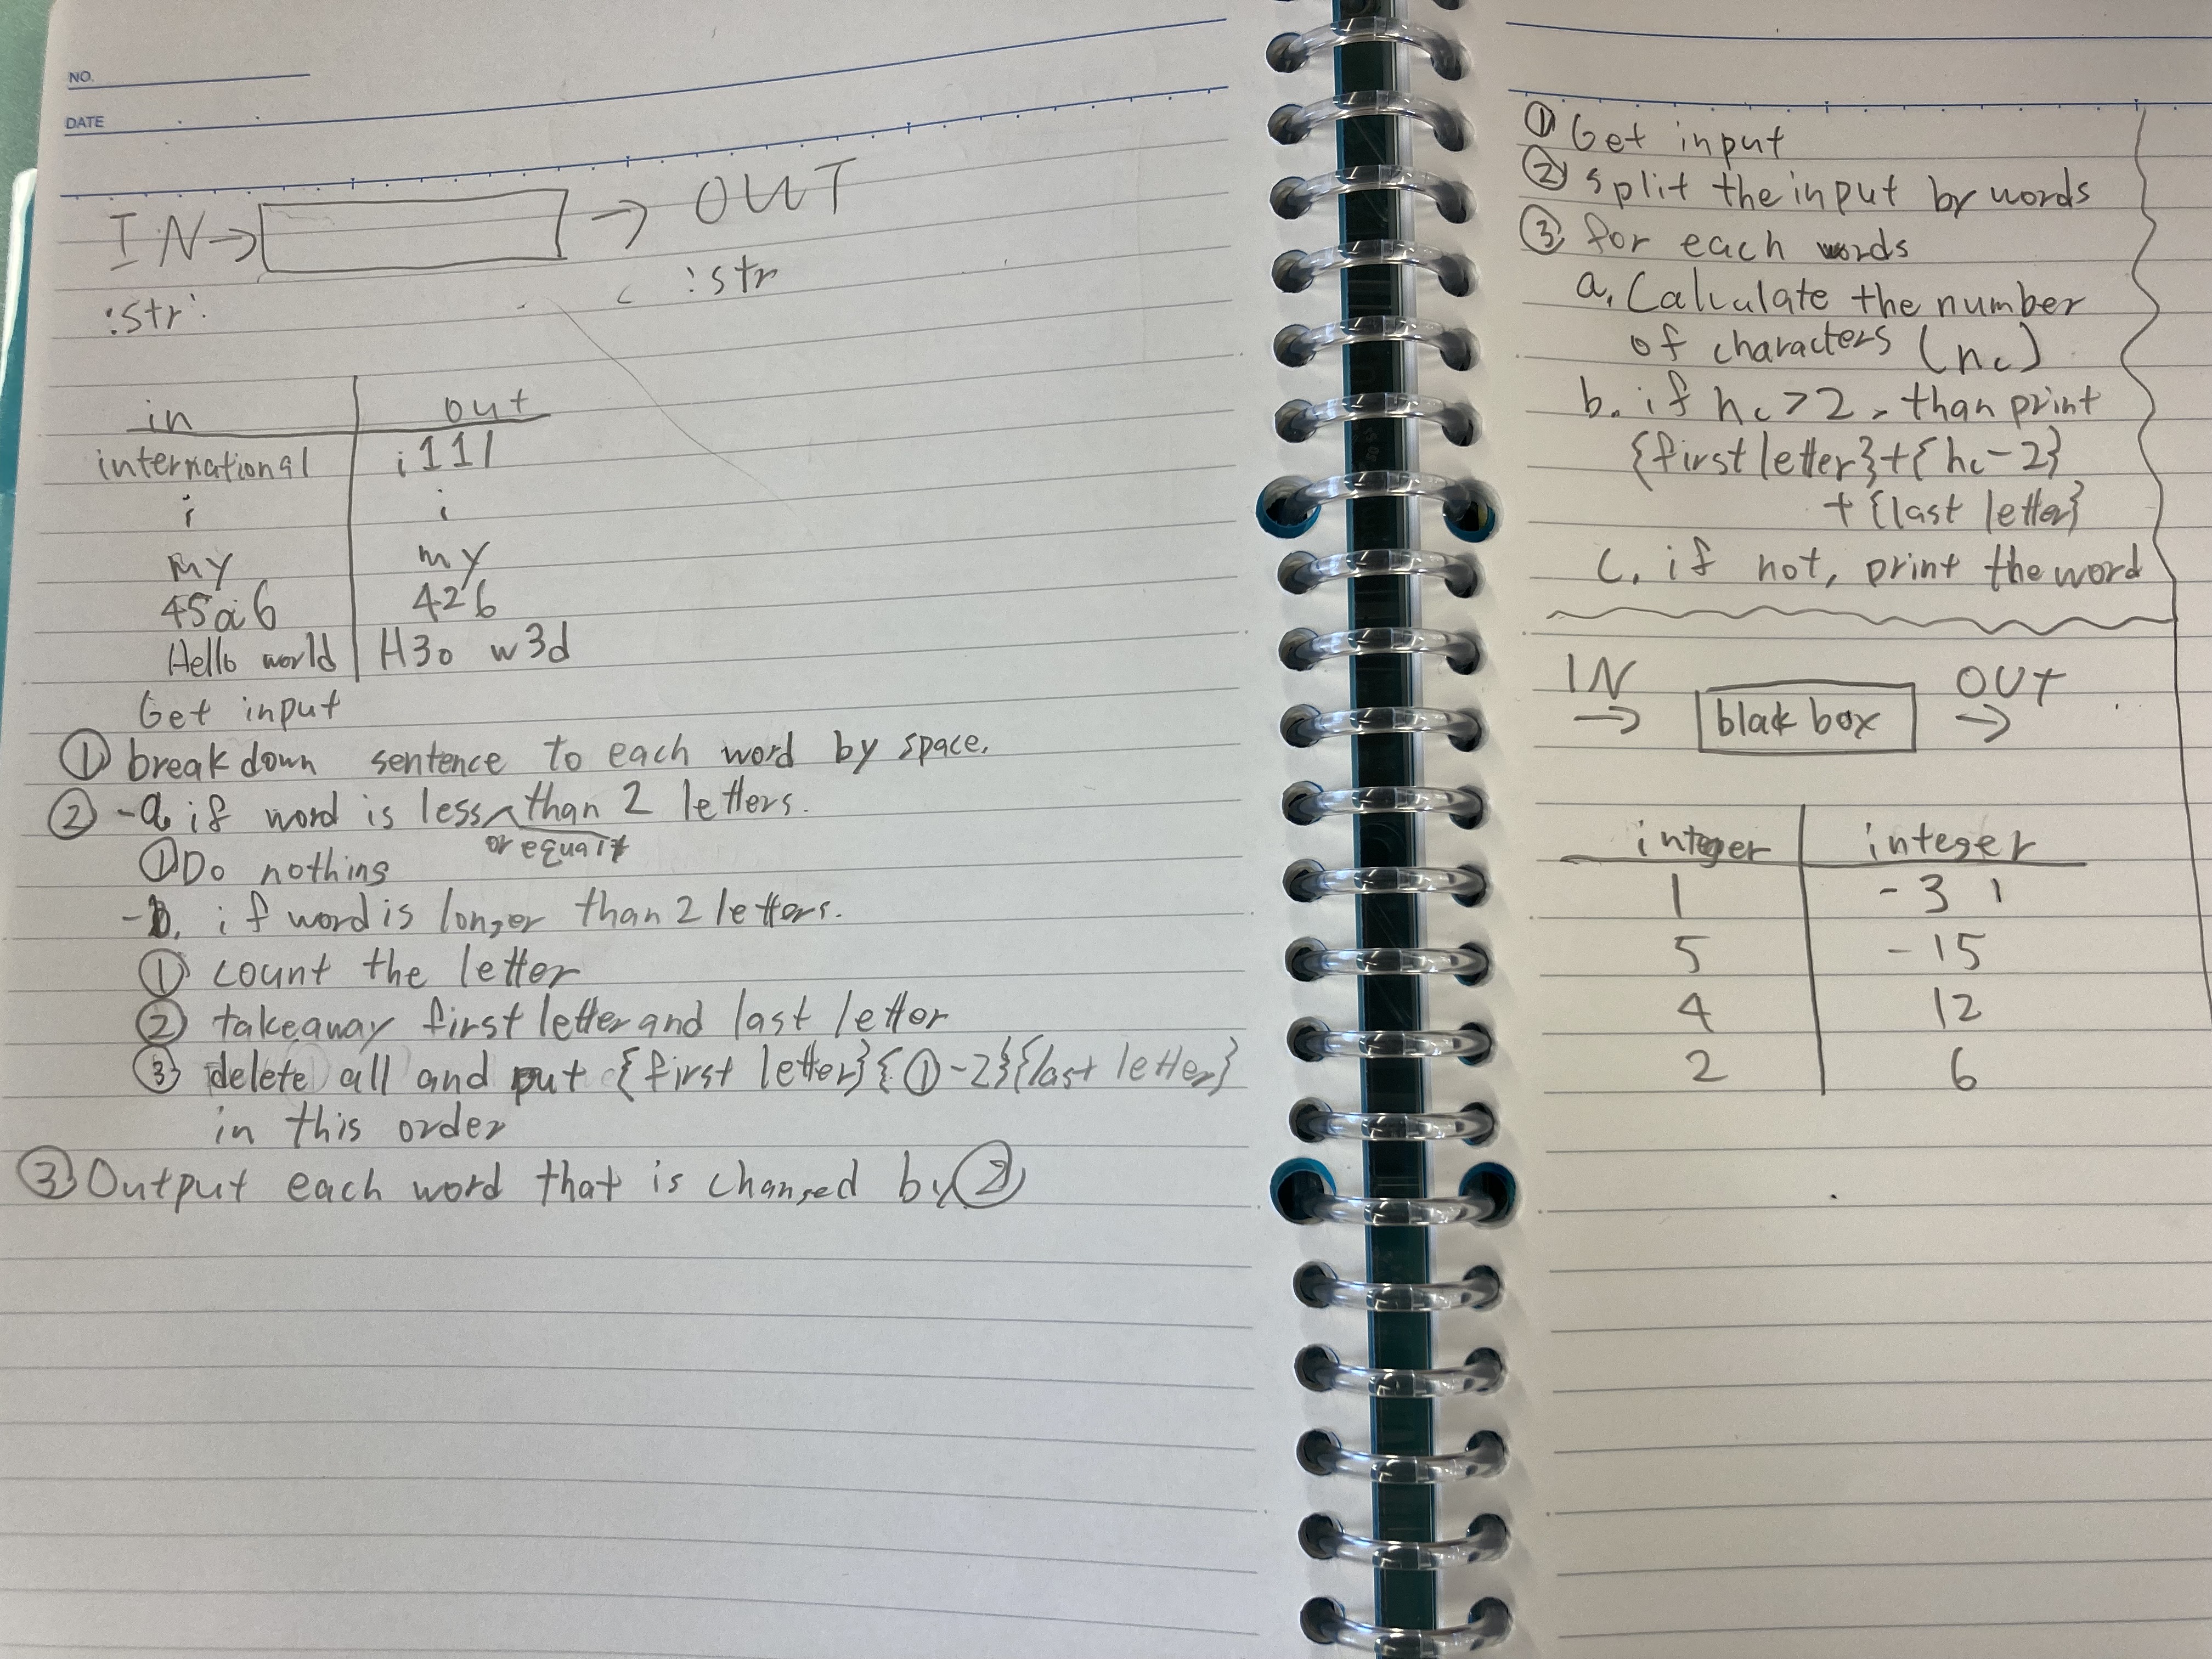 NO.
DATE
IN → → OUT
:str. :str
in out
international i11l
i i
my my
45a6 426
Hello world H3o w3d
Get input
① breakdown sentence to each word by space.
② -a. if word is less than 2 letters.
or equal
① Do nothing
-b. if word is longer than 2 letters.
① count the letter
② takeaway first letter and last letter
③ delete all and put {first letter}{①-2}{last letter}
in this order
③ Output each word that is changed by ②
① Get input
② split the input by words
③ for each words
a. Calculate the number
of characters (nc)
b. if nc > 2, than print
{first letter}+{nc-2}
+{last letter}
c. if not, print the word
IN OUT
→ black box →
integer integer
1 -3
5 -15
4 12
2 6